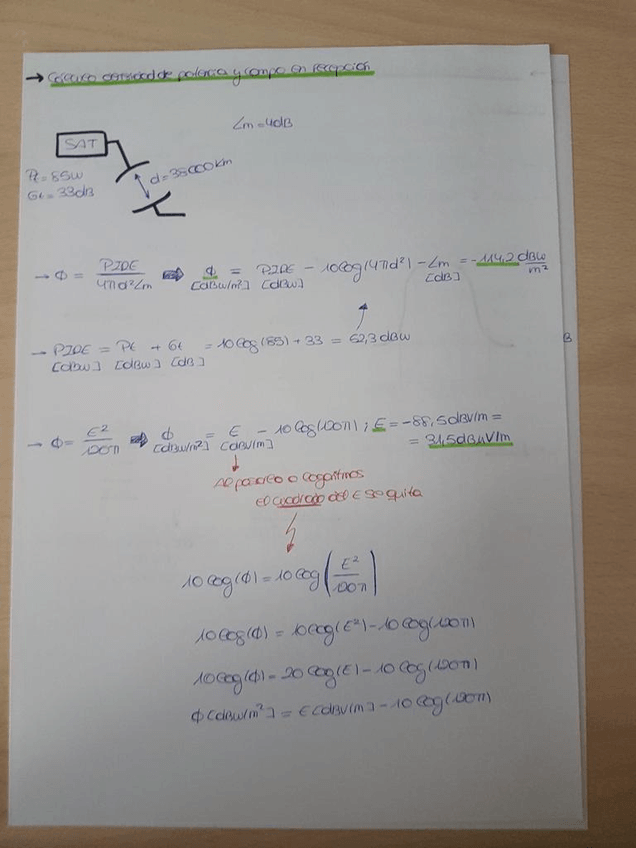 → Cálculo densidad de potencia y campo en recepción
Lm = 4dB
SAT
d = 38000km
Pt = 85W
Gt = 33dB
→ Φ = PIRE / 4πd²Lm ⇒ Φ [dBW/m²] = PIRE [dBW] - 10log(4πd²) - Lm [dB] = -114,2 dBW/m²
→ PIRE [dBW] = Pt [dBW] + Gt [dB] = 10log(85) + 33 = 52,3 dBW
B
→ Φ = E² / 120π ⇒ Φ [dBW/m²] = E [dBV/m] - 10log(120π) ; E = -88,5dBV/m =
= 31,5dBμV/m
Al pasarlo a logaritmos
el cuadrado del E se quita
10log(Φ) = 10log(E² / 120π)
10log(Φ) = 10log(E²) - 10log(120π)
10log(Φ) = 20log(E) - 10log(120π)
Φ[dBW/m²] = E[dBV/m] - 10log(120π)